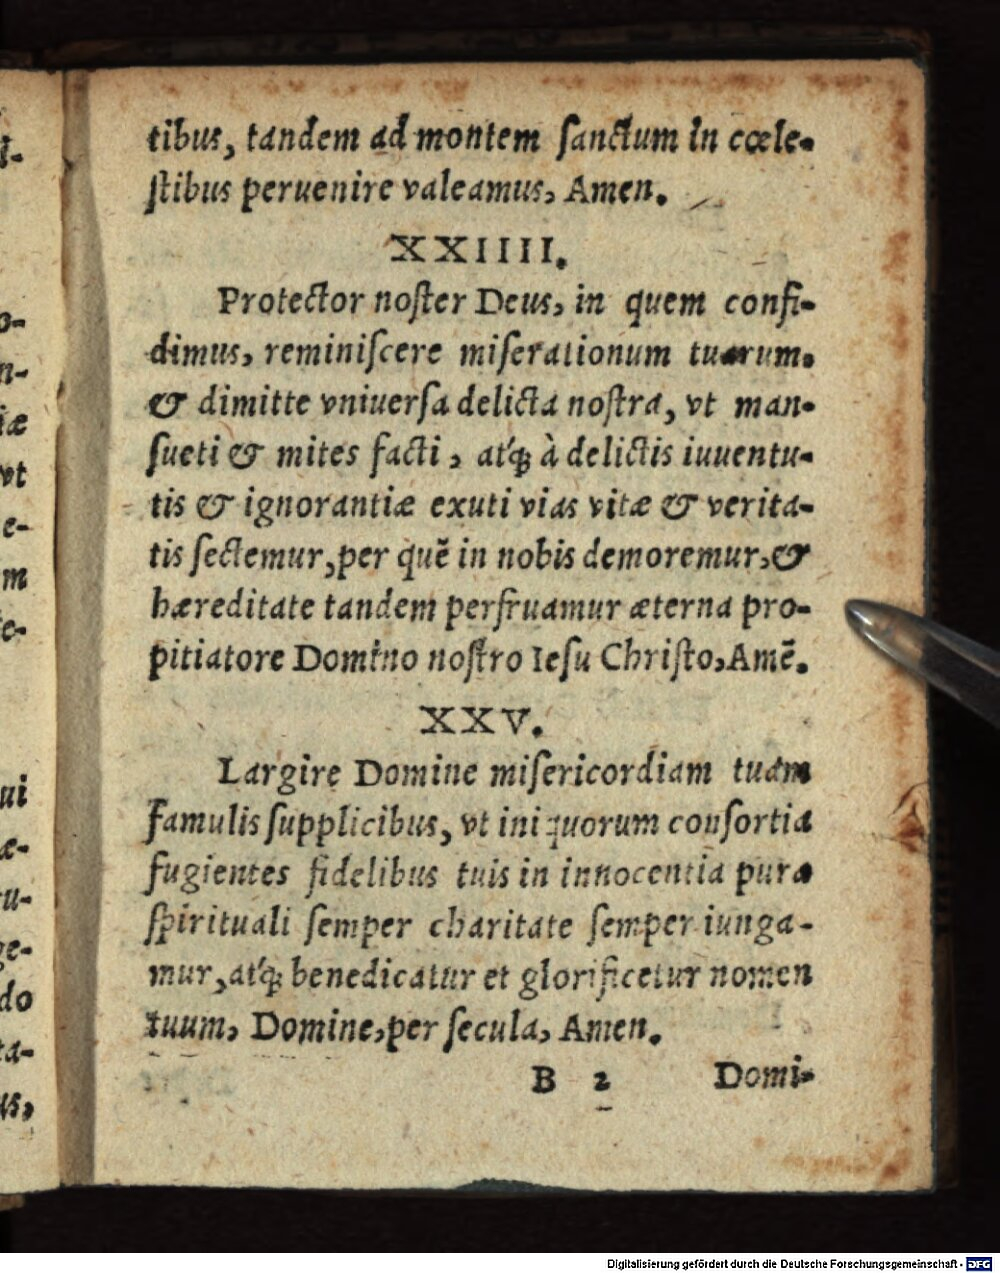 tibus, tandem ad montem ſanctum in cœle-
ſtibus peruenire valeamus, Amen.
XXIIII.
Protector noſter Deus, in quem confi-
dimus, reminiſcere miſerationum tuarum.
& dimitte vniuerſa delicta noſtra, vt man-
ſueti & mites facti, atq́; à delictis iuuentu-
tis & ignorantiæ exuti vias vitæ & verita-
tis ſectemur, per quē in nobis demoremur, &
hæreditate tandem perfruamur æterna pro-
pitiatore Domino noſtro Ieſu Chriſto, Amē.
XXV.
Largire Domine miſericordiam tuam
famulis ſupplicibus, vt iniquorum conſortia
fugientes fidelibus tuis in innocentia pura
ſpirituali ſemper charitate ſemper iunga-
mur, atq́; benedicatur et glorificetur nomen
tuum, Domine, per ſecula, Amen.
B 2 Domi-
Digitalisierung gefördert durch die Deutsche Forschungsgemeinschaft - DFG